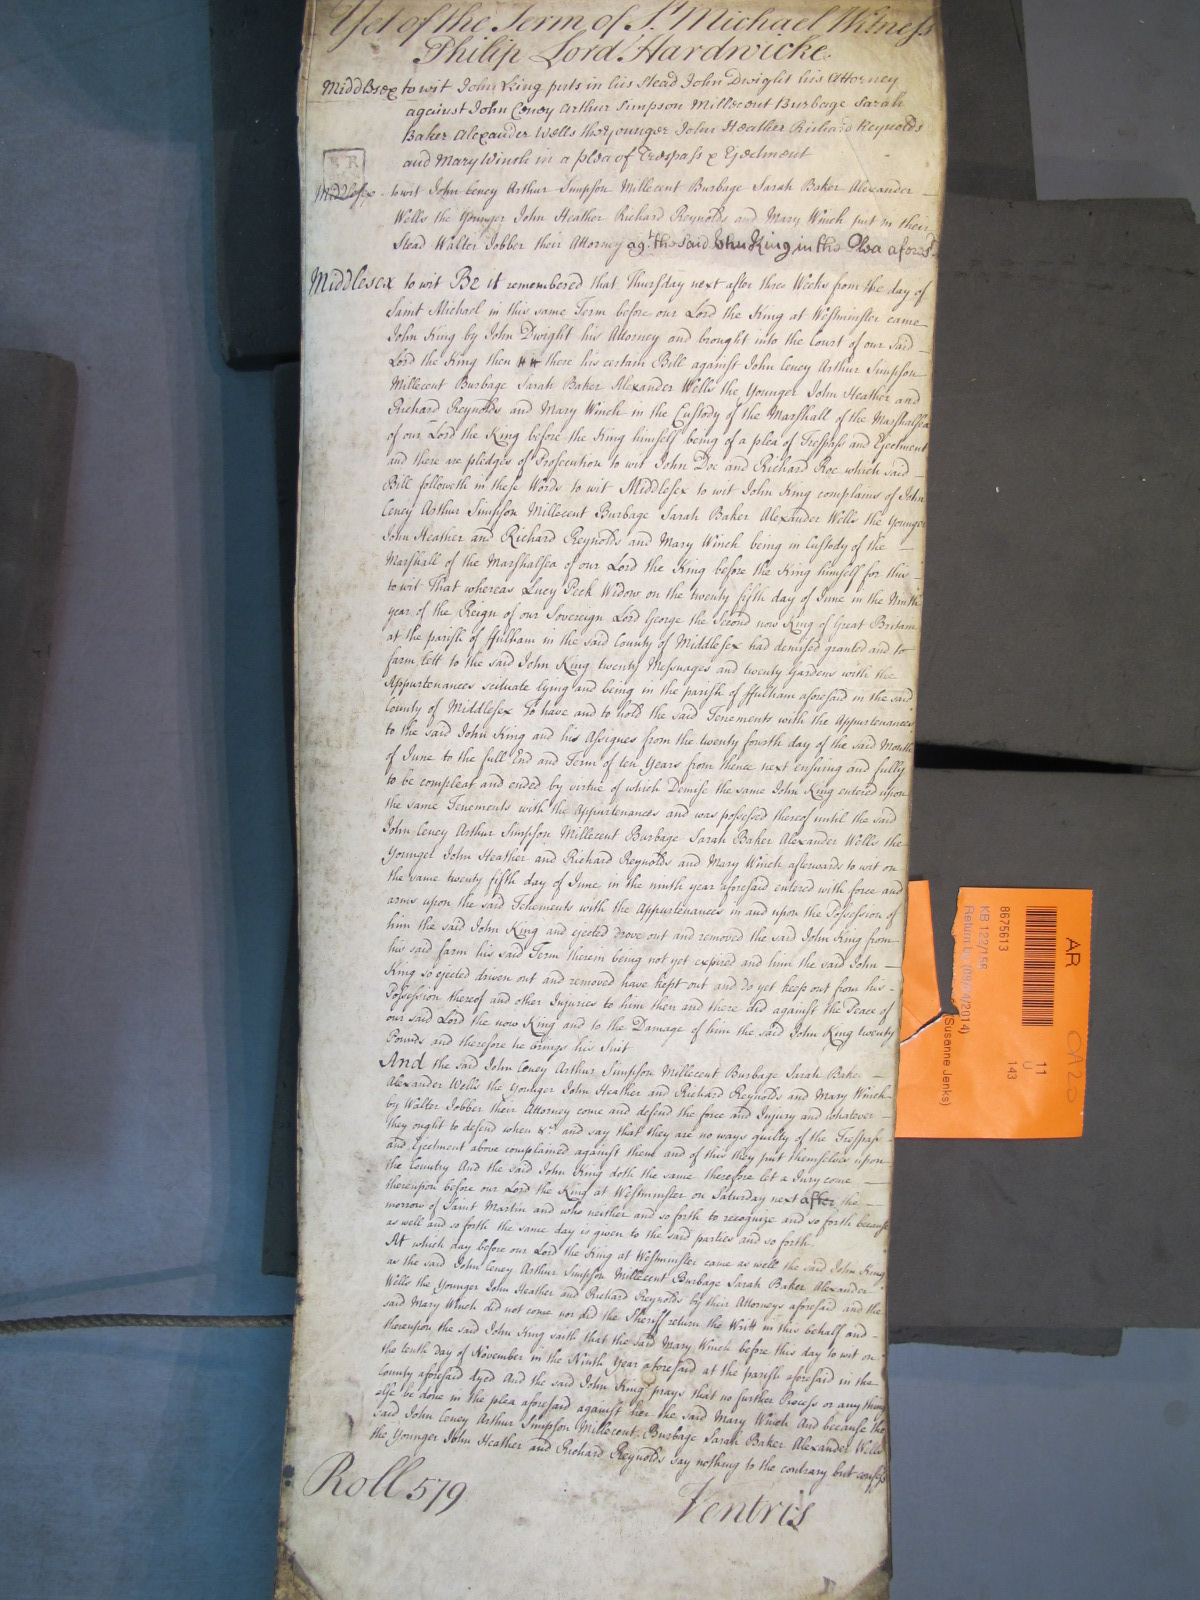 Yet of the Term of St. Michael Witness
Philip Lord Hardwicke.
Middlesex to wit John King puts in his Stead John Dwight his Attorney
against John Ceney Arthur Simpson Millecent Burbage Sarah
Baker Alexander Wells the Younger John Heather Richard Reynolds
and Mary Winch in a plea of Trespass & Ejectment
Middlesex to wit John Ceney Arthur Simpson Millecent Burbage Sarah Baker Alexander
Wells the Younger John Heather Richard Reynolds and Mary Winch put in their
Stead Walter Jobber their Attorney agt. the said John King in the Plea aforesd
Middlesex to wit Be it remembered that Thursday next after three Weeks from the day of
Saint Michael in this same Term before our Lord the King at Westminster came
John King by John Dwight his Attorney and brought into the Court of our said
Lord the King then there his certain Bill against John Ceney Arthur Simpson
Millecent Burbage Sarah Baker Alexander Wells the Younger John Heather and
Richard Reynolds and Mary Winch in the Custody of the Marshall of the Marshalsea
of our Lord the King before the King himself being of a plea of Trespass and Ejectment
and there are pledges of Prosecution to wit John Doe and Richard Roe which said
Bill followeth in these Words to wit Middlesex to wit John King complains of John
Ceney Arthur Simpson Millecent Burbage Sarah Baker Alexander Wells the Younger
John Heather and Richard Reynolds and Mary Winch being in Custody of the
Marshall of the Marshalsea of our Lord the King before the King himself for this
to wit That whereas Lucy Peck Widow on the twenty fifth day of June in the Ninth
year of the Reign of our Sovereign Lord George the Second now King of Great Britain
at the parish of ffulham in the said County of Middlesex had demised granted and to
farm lett to the said John King twenty Messuages and twenty Gardens with the
Appurtenances scituate lying and being in the parish of ffulham aforesaid in the said
County of Middlesex To have and to hold the said Tenements with the Appurtenances
to the said John King and his Assignes from the twenty fourth day of the said Month
of June to the full End and Term of ten Years from thence next ensuing and fully
to be compleat and ended by virtue of which Demise the same John King entered upon
the same Tenements with the Appurtenances and was possessed thereof until the said
John Ceney Arthur Simpson Millecent Burbage Sarah Baker Alexander Wells the
Younger John Heather and Richard Reynolds and Mary Winch afterwards to wit on
the same twenty fifth day of June in the ninth year aforesaid entered with force and
arms upon the said Tenements with the Appurtenances in and upon the Possession of
him the said John King and ejected drove out and removed the said John King from
his said farm his said Term therein being not yet expired and him the said John
King so ejected driven out and removed have kept out and do yet keep out from his
Possession thereof and other Injuries to him then and there did against the Peace of
our said Lord the now King and to the Damage of him the said John King twenty
Pounds and therefore he brings his Suit
And the said John Ceney Arthur Simpson Millecent Burbage Sarah Baker
Alexander Wells the Younger John Heather and Richard Reynolds and Mary Winch
by Walter Jobber their Attorney come and defend the force and Injury and whatever
they ought to defend when &c. and say that they are no ways guilty of the Trespass
and Ejectment above complained against them and of this they put themselves upon
the Country And the said John King doth the same therefore let a Jury come
thereupon before our Lord the King at Westminster on Saturday next after the
morrow of Saint Martin and who neither and so forth to recognize and so forth because
as well and so forth the same day is given to the said parties and so forth
At which day before our Lord the King at Westminster came as well the said John King
as the said John Ceney Arthur Simpson Millecent Burbage Sarah Baker Alexander
Wells the Younger John Heather and Richard Reynolds by their Attorneys aforesaid and the
said Mary Winch did not come nor did the Sheriff return the Writt in this behalf and
thereupon the said John King saith that the said Mary Winch before this day to wit on
the tenth day of November in the Ninth Year aforesaid at the parish aforesaid in the
County aforesaid dyed And the said John King prays that no further Process or any thing
else be done in the plea aforesaid against her the said Mary Winch And because the
said John Ceney Arthur Simpson Millecent Burbage Sarah Baker Alexander Wells
the Younger John Heather and Richard Reynolds say nothing to the contrary but confess
Roll 579
Ventris
AR
8675613
KB 122/156
Return by (09/04/2014)
(Susanne Jenks)
11
U
143
OA20